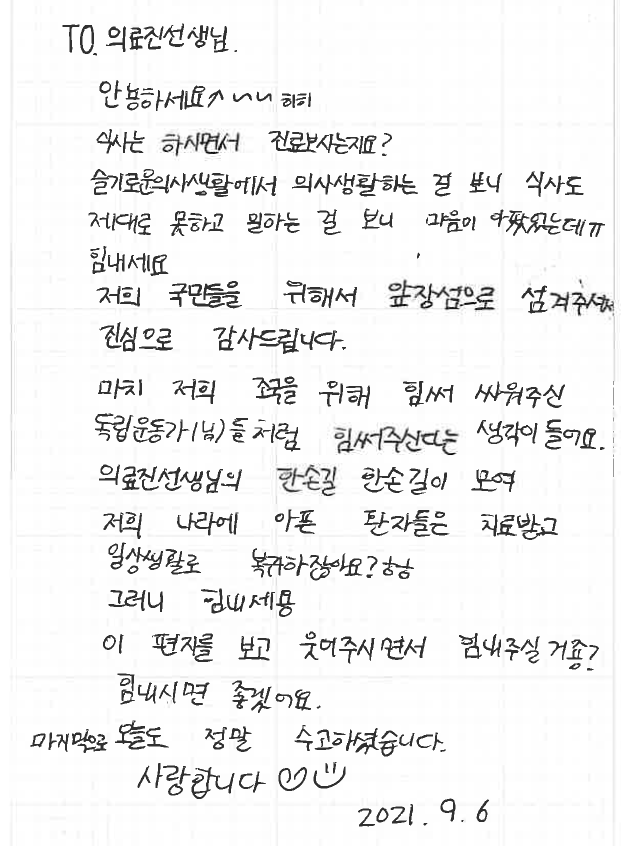 TO. 의료진선생님.
안뇽하세요^~~ 히히
식사는 하시면서 진료보시는지요?
슬기로운의사생활에서 의사생활하는 걸 보니 식사도
제대로 못하고 일하는 걸 보니 마음이 아팠었는데ㅠ
힘내세요
저희 국민들을 위해서 앞장섬으로 섬겨주셔서
진심으로 감사드립니다.
마치 저희 조국을 위해 힘써 싸워주신
독립운동가(님)들처럼 힘써주신다는 생각이 들어요.
의료진선생님의 한손길 한손길이 모여
저희 나라에 아픈 환자들은 치료받고
일상생활로 복귀하잖아요? ㅎㅎ
그러니 힘내세용
이 편지를 보고 웃어주시면서 힘내주실 거죵?
힘내시면 좋겠어요.
마지막으로 오늘도 정말 수고하셨습니다.
사랑합니다
2021. 9. 6